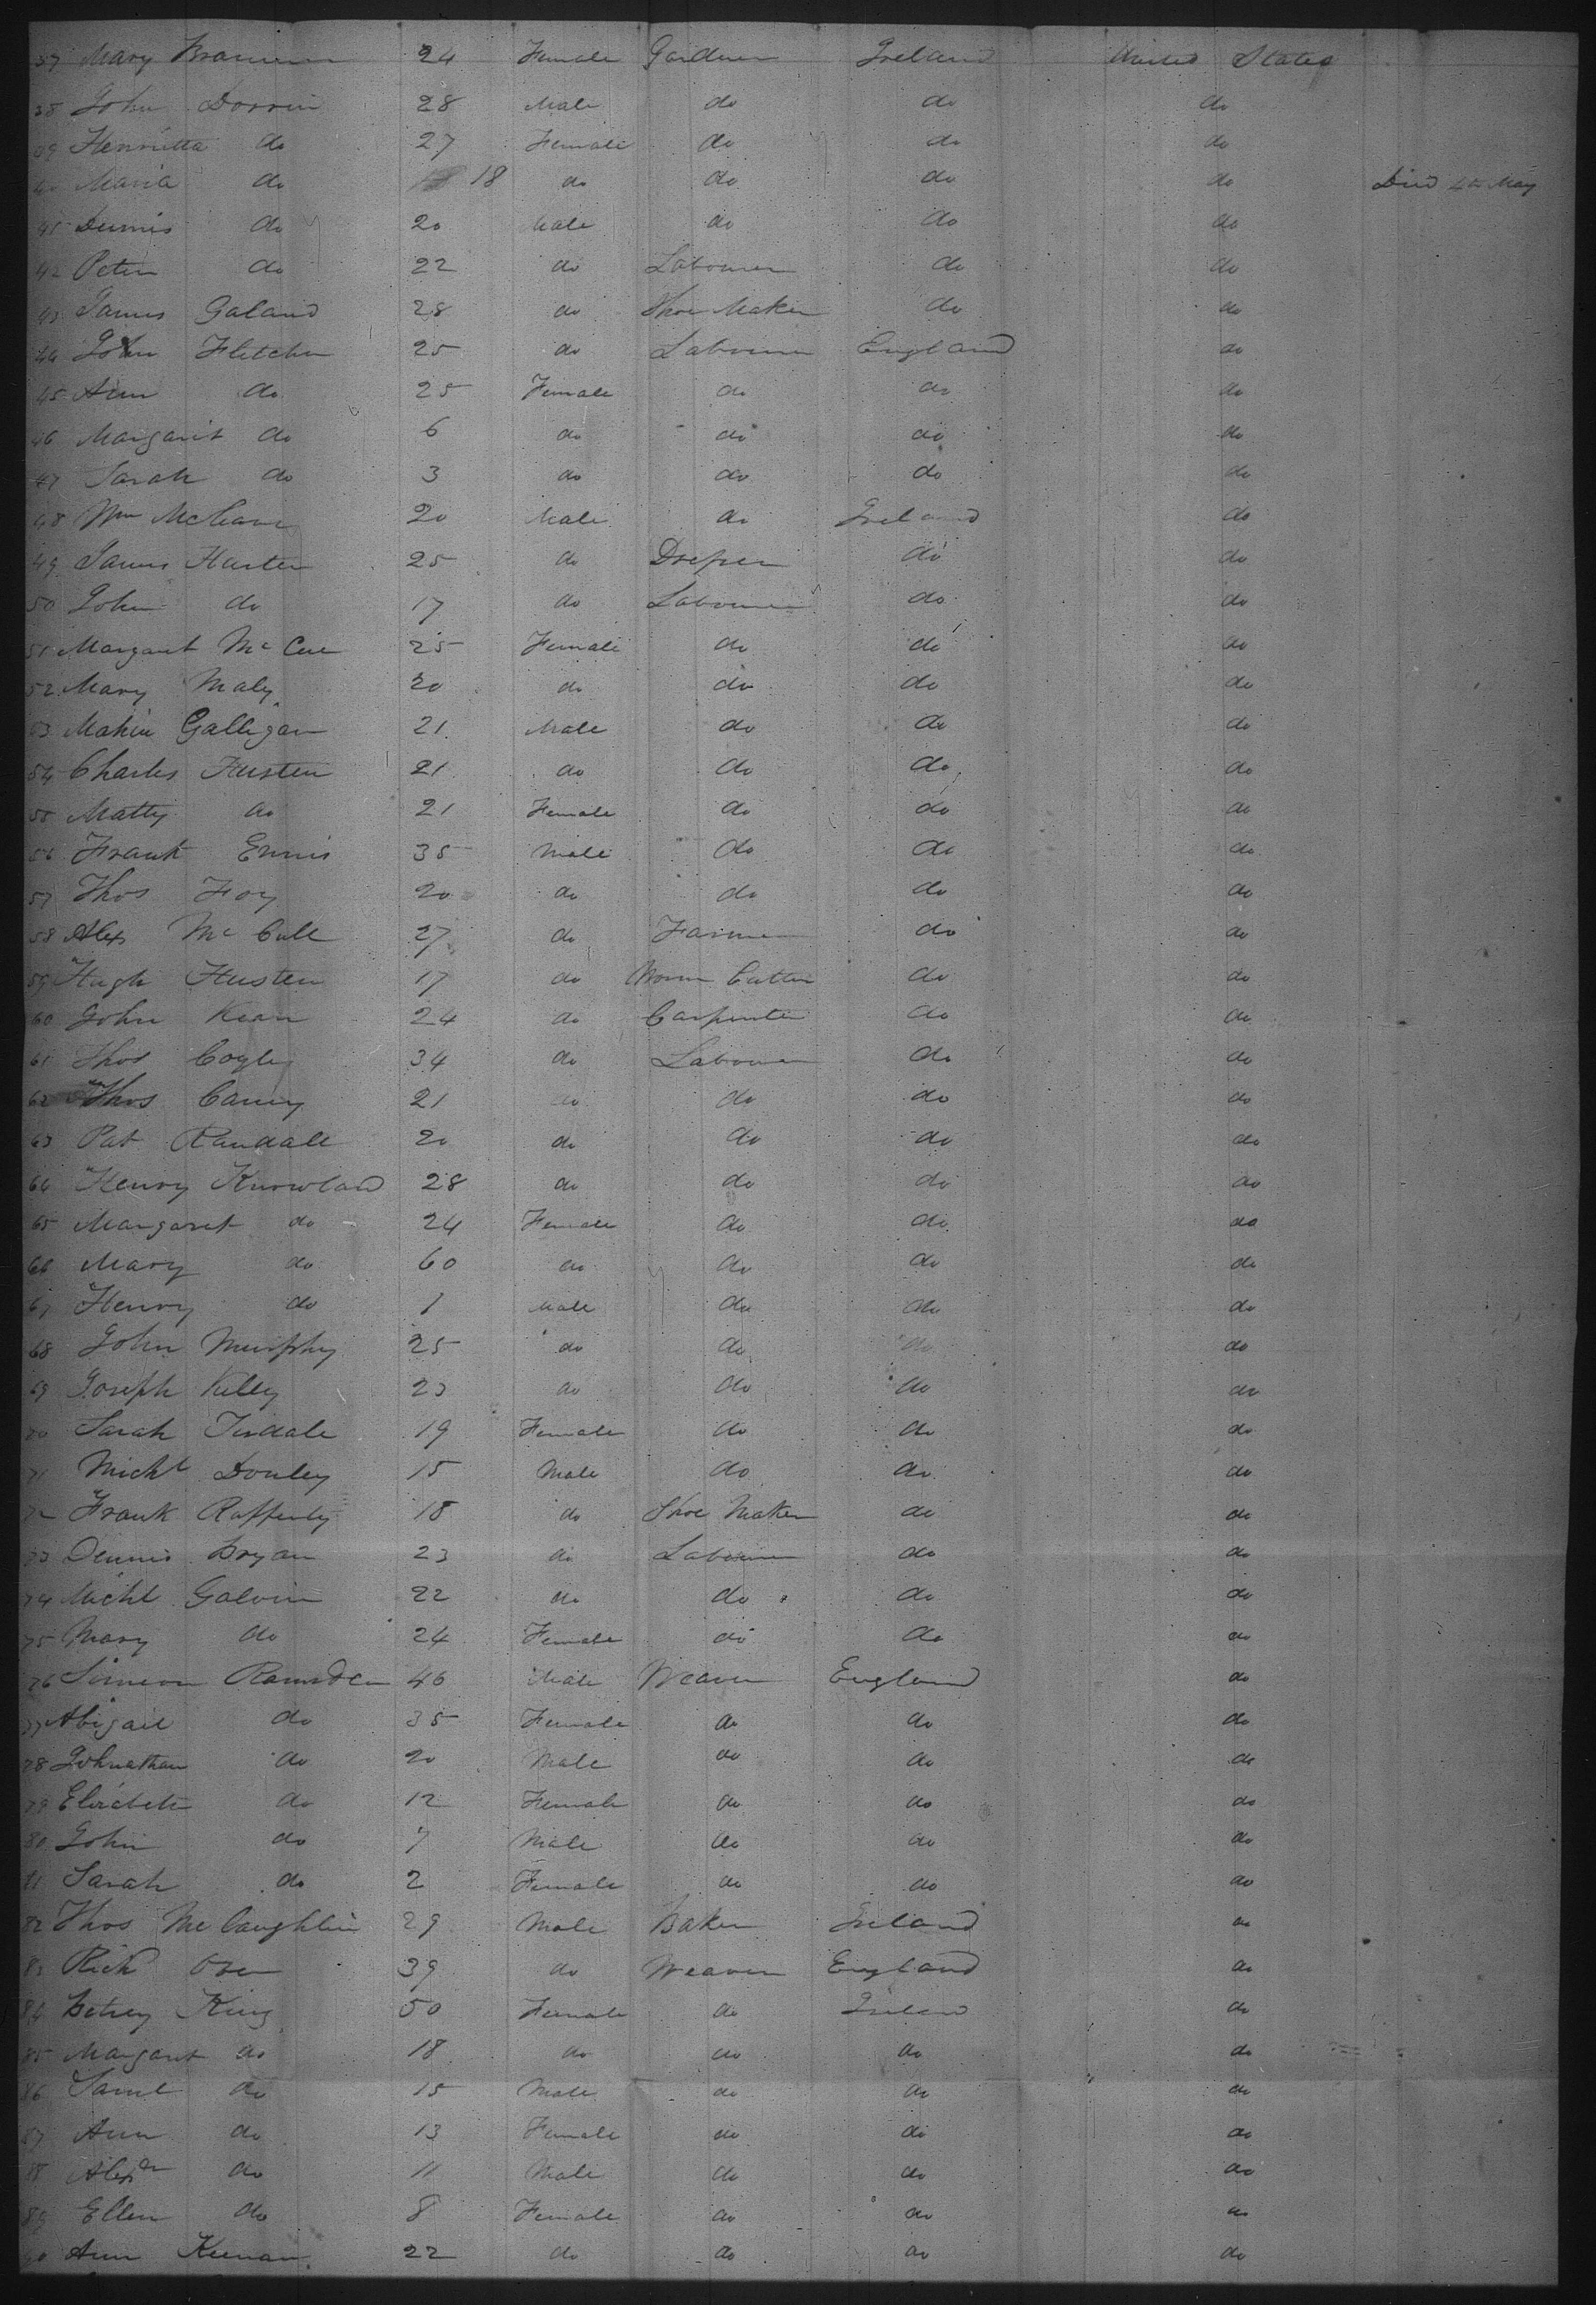 37 Mary 24 Female Gardner Ireland United States
38 John Dorrin 28 Male do do do
39 Henrietta do 27 Female do do do
40 Maria do 18 do do do do Died 4th May
41 Dennis do 20 Male do do do
42 Peter do 22 do Labourer do do
43 James Galand 28 do Shoe Maker do do
44 John Fletcher 25 do Labourer England do
45 Ann do 25 Female do do do
46 Margaret do 6 do do do do
47 Sarah do 3 do do do do
48 Wm 20 Male do Ireland do
49 James Harten 25 do do do
50 John do 17 do Labourer do do
51 Margaret Mc Cue 25 Female do do do
52 Mary Maly 20 do do do do
53 Galligan 21 Male do do do
54 Charles Husten 21 do do do do
55 Matty do 21 Female do do do
56 Frank Ennis 35 Male do do do
57 Thos Foy 20 do do do do
58 Alex Mc Call 27 do Farmer do do
59 Hugh Husten 17 do Cutter do do
60 John Kean 24 do Carpenter do do
61 Thos Cogley 34 do Labourer do do
62 Thos Carney 21 do do do do
63 Pat Randall 20 do do do do
64 Henry Knowland 28 do do do do
65 Margaret do 24 Female do do do
66 Mary do 60 do do do do
67 Henry do 1 Male do do do
68 John Murphy 25 do do do do
69 Joseph Kelly 23 do do do do
70 Sarah Tisdale 19 Female do do do
71 Michl Donley 15 Male do do do
72 Frank Rafferty 18 do Shoe Maker do do
73 Dennis Bryan 23 do Labourer do do
74 Michl Galvin 22 do do do do
75 Mary do 24 Female do do do
76 Simeon Ramsden 46 Male Weaver England do
77 Abigail do 35 Female do do do
78 Johnathan do 20 Male do do do
79 Elizabeth do 12 Female do do do
80 John do 7 Male do do do
81 Sarah do 2 Female do do do
82 Thos Mc Caughlin 29 Male Baker Ireland do
83 Rich 39 do Weaver England do
84 Betsey King 50 Female do Ireland do
85 Margaret do 18 do do do do
86 Saml do 15 Male do do do
87 Ann do 13 Female do do do
88 Alexdr do 11 Male do do do
89 Ellen do 8 Female do do do
90 Ann Keenan 22 do do do do